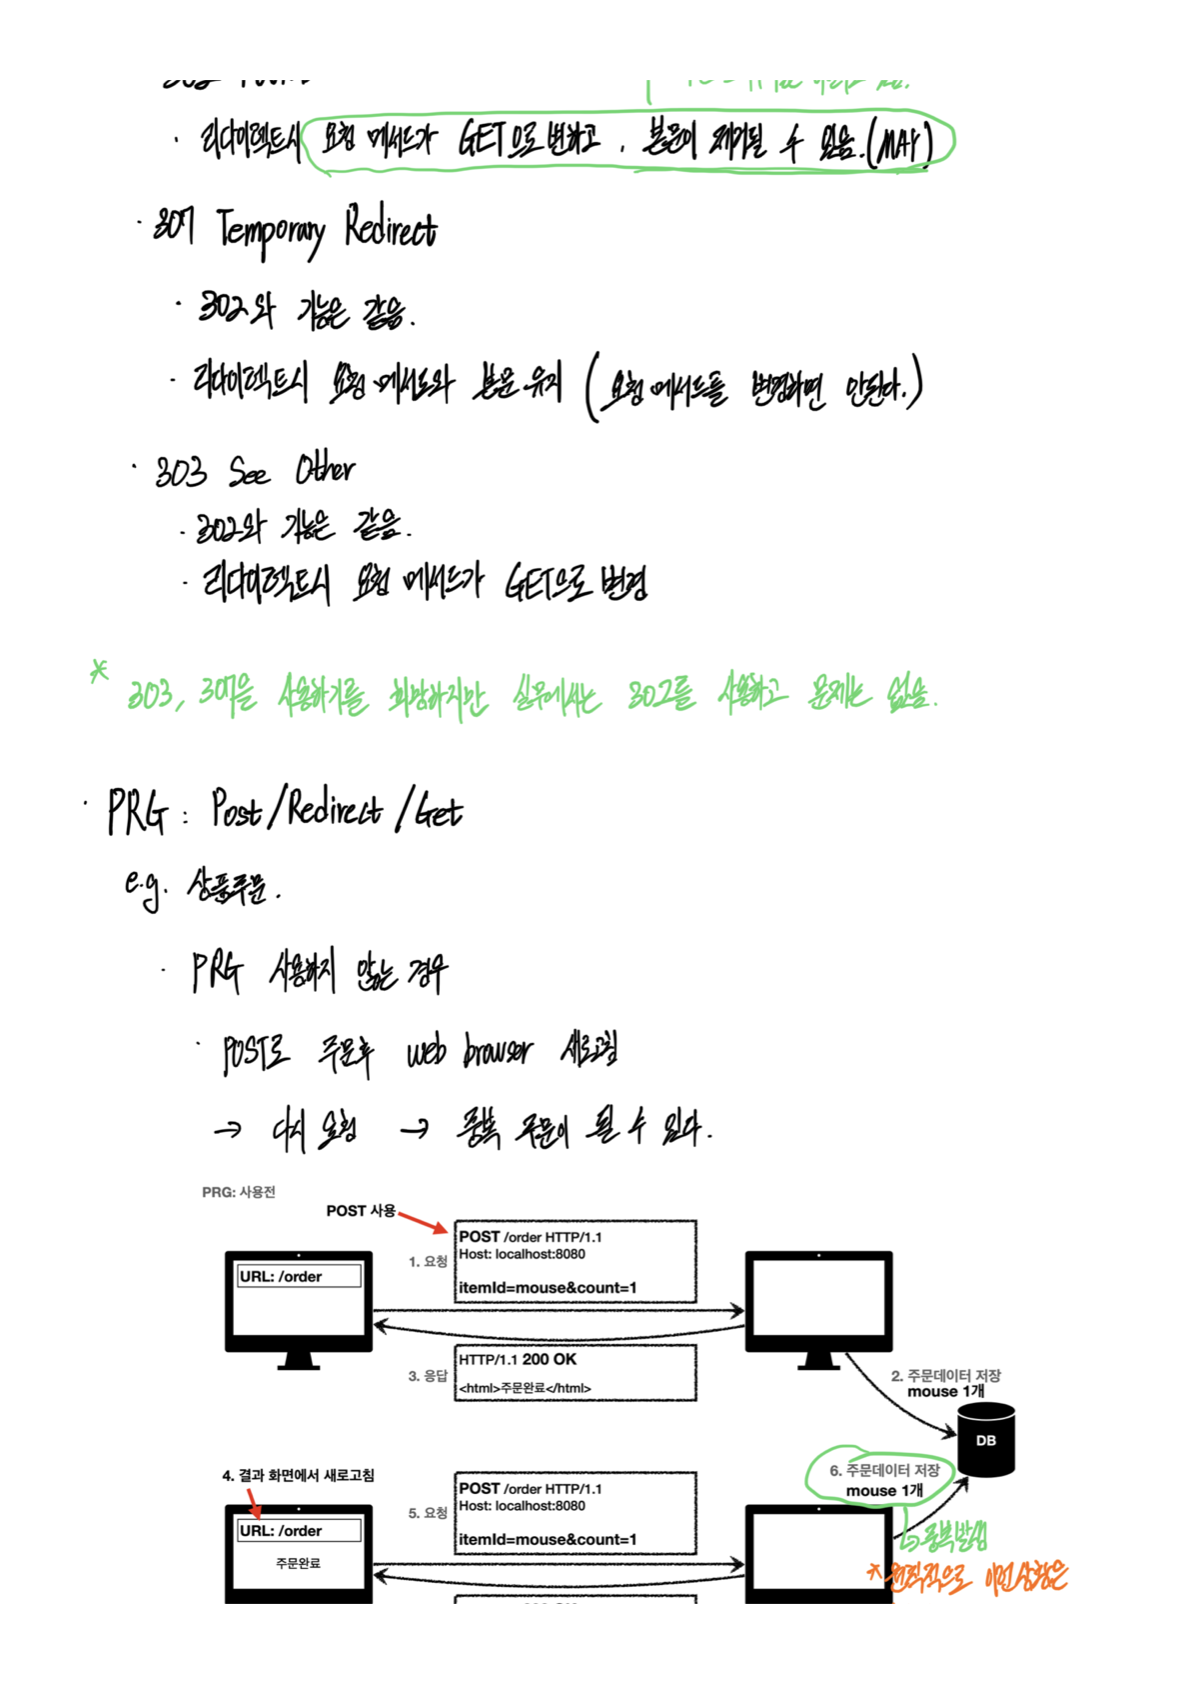 · 리다이렉트시 요청 메서드가 GET으로 변하고, 본문이 제거될 수 있음.(MAY)
· 307 Temporary Redirect
· 302와 기능은 같음.
· 리다이렉트시 요청 메서드와 본문 유지 (요청 메서드를 변경하면 안된다.)
· 303 See Other
· 302와 기능은 같음.
· 리다이렉트시 요청 메서드가 GET으로 변경
* 303, 307을 사용하기를 희망하지만 실무에서는 302를 사용하고 문제는 없음.
· PRG : Post/Redirect/Get
e.g. 상품주문.
· PRG 사용하지 않는 경우
· POST로 주문후 web browser 새로고침
→ 다시 요청 → 중복 주문이 될 수 있다.
PRG: 사용전
POST 사용
POST /order HTTP/1.1
1. 요청
Host: localhost:8080
URL: /order
itemId=mouse&count=1
HTTP/1.1 200 OK
3. 응답
<html>주문완료</html>
2. 주문데이터 저장
mouse 1개
DB
4. 결과 화면에서 새로고침
6. 주문데이터 저장
mouse 1개
POST /order HTTP/1.1
5. 요청
Host: localhost:8080
URL: /order
itemId=mouse&count=1
주문완료
중복발생
* 원칙적으로 이런상황은